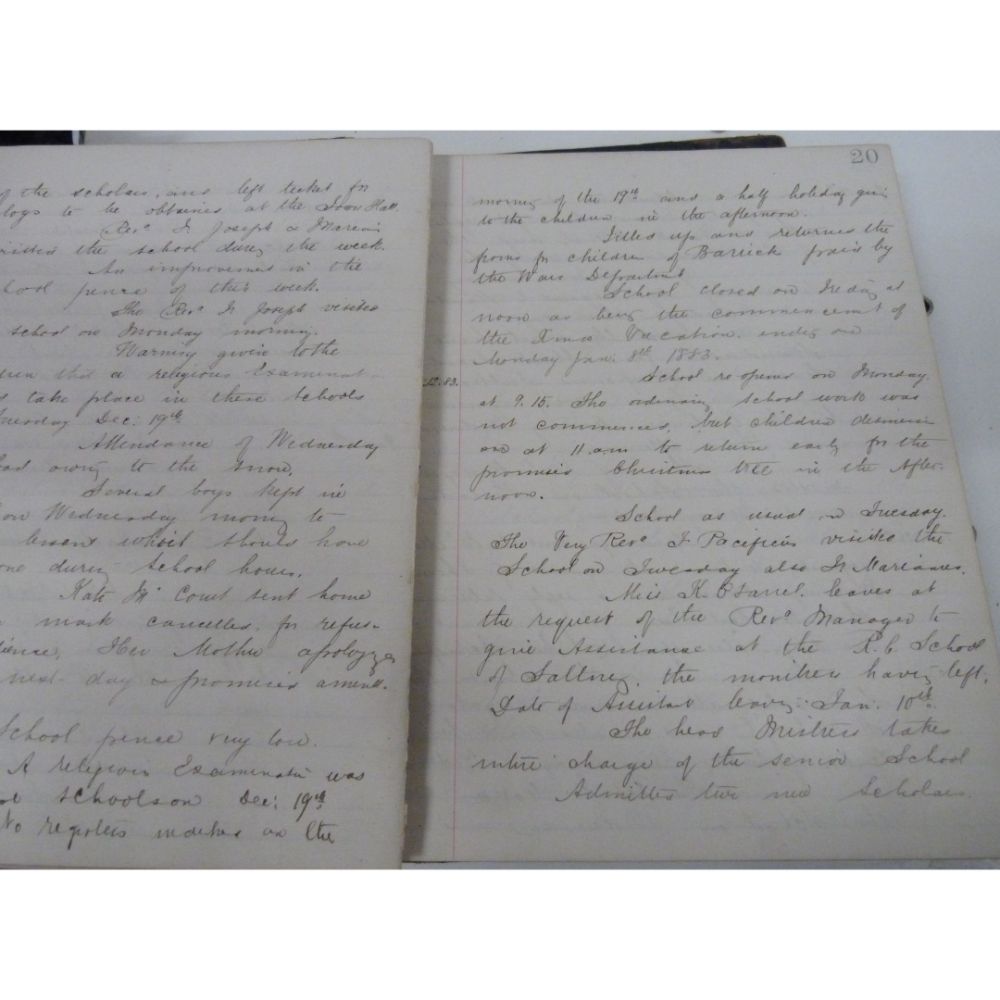 of the scholars, and left ticket for
to be obtained at the Town Hall.
Revd. Fr Joseph &
visited the school during the week.
An improvement in the
school pence of this week.
The Revd. Fr Joseph visited
school on Monday morning.
Warning given to the
that a religious Examinat-
take place in these Schools
Tuesday Dec: 19th
Attendance of Wednesday
bad owing to the snow.
Several boys kept in
on Wednesday morning to
lessons which should have
done during school hours.
Kate Mc Court sent home
mark cancelled, for refus-
Her Mother apologizes
next day & promised amend.
School pence very low.
A religious Examinatn was
schools on Dec: 19th
No registers marked on the
20
morning of the 19th and a half holiday given
to the children in the afternoon.
Filled up and returned the
forms for children of Barrick paid by
the War Department
School closed on Friday at
noon as being the commencement of
the Xmas Vacation. ending on
Monday Jan. 8th 1883.
School re-opened on Monday
at 9.15. The ordinary school work was
not commenced, but children dismissed
at 11 a.m to return early for the
promised Christmas tree in the After-
noon.
School as usual on Tuesday.
The Very Revd. F Pacificus visited the
School on Tuesday also Fr Marianus.
Miss K. O'Farrel. leaves at
the request of the Revd Manager to
give Assistance at the R.C School
of Saltney, the monitress having left,
Date of Assistant leaving Jan. 10th.
The head Mistress takes
entire charge of the senior School
Admitted two new Scholars.